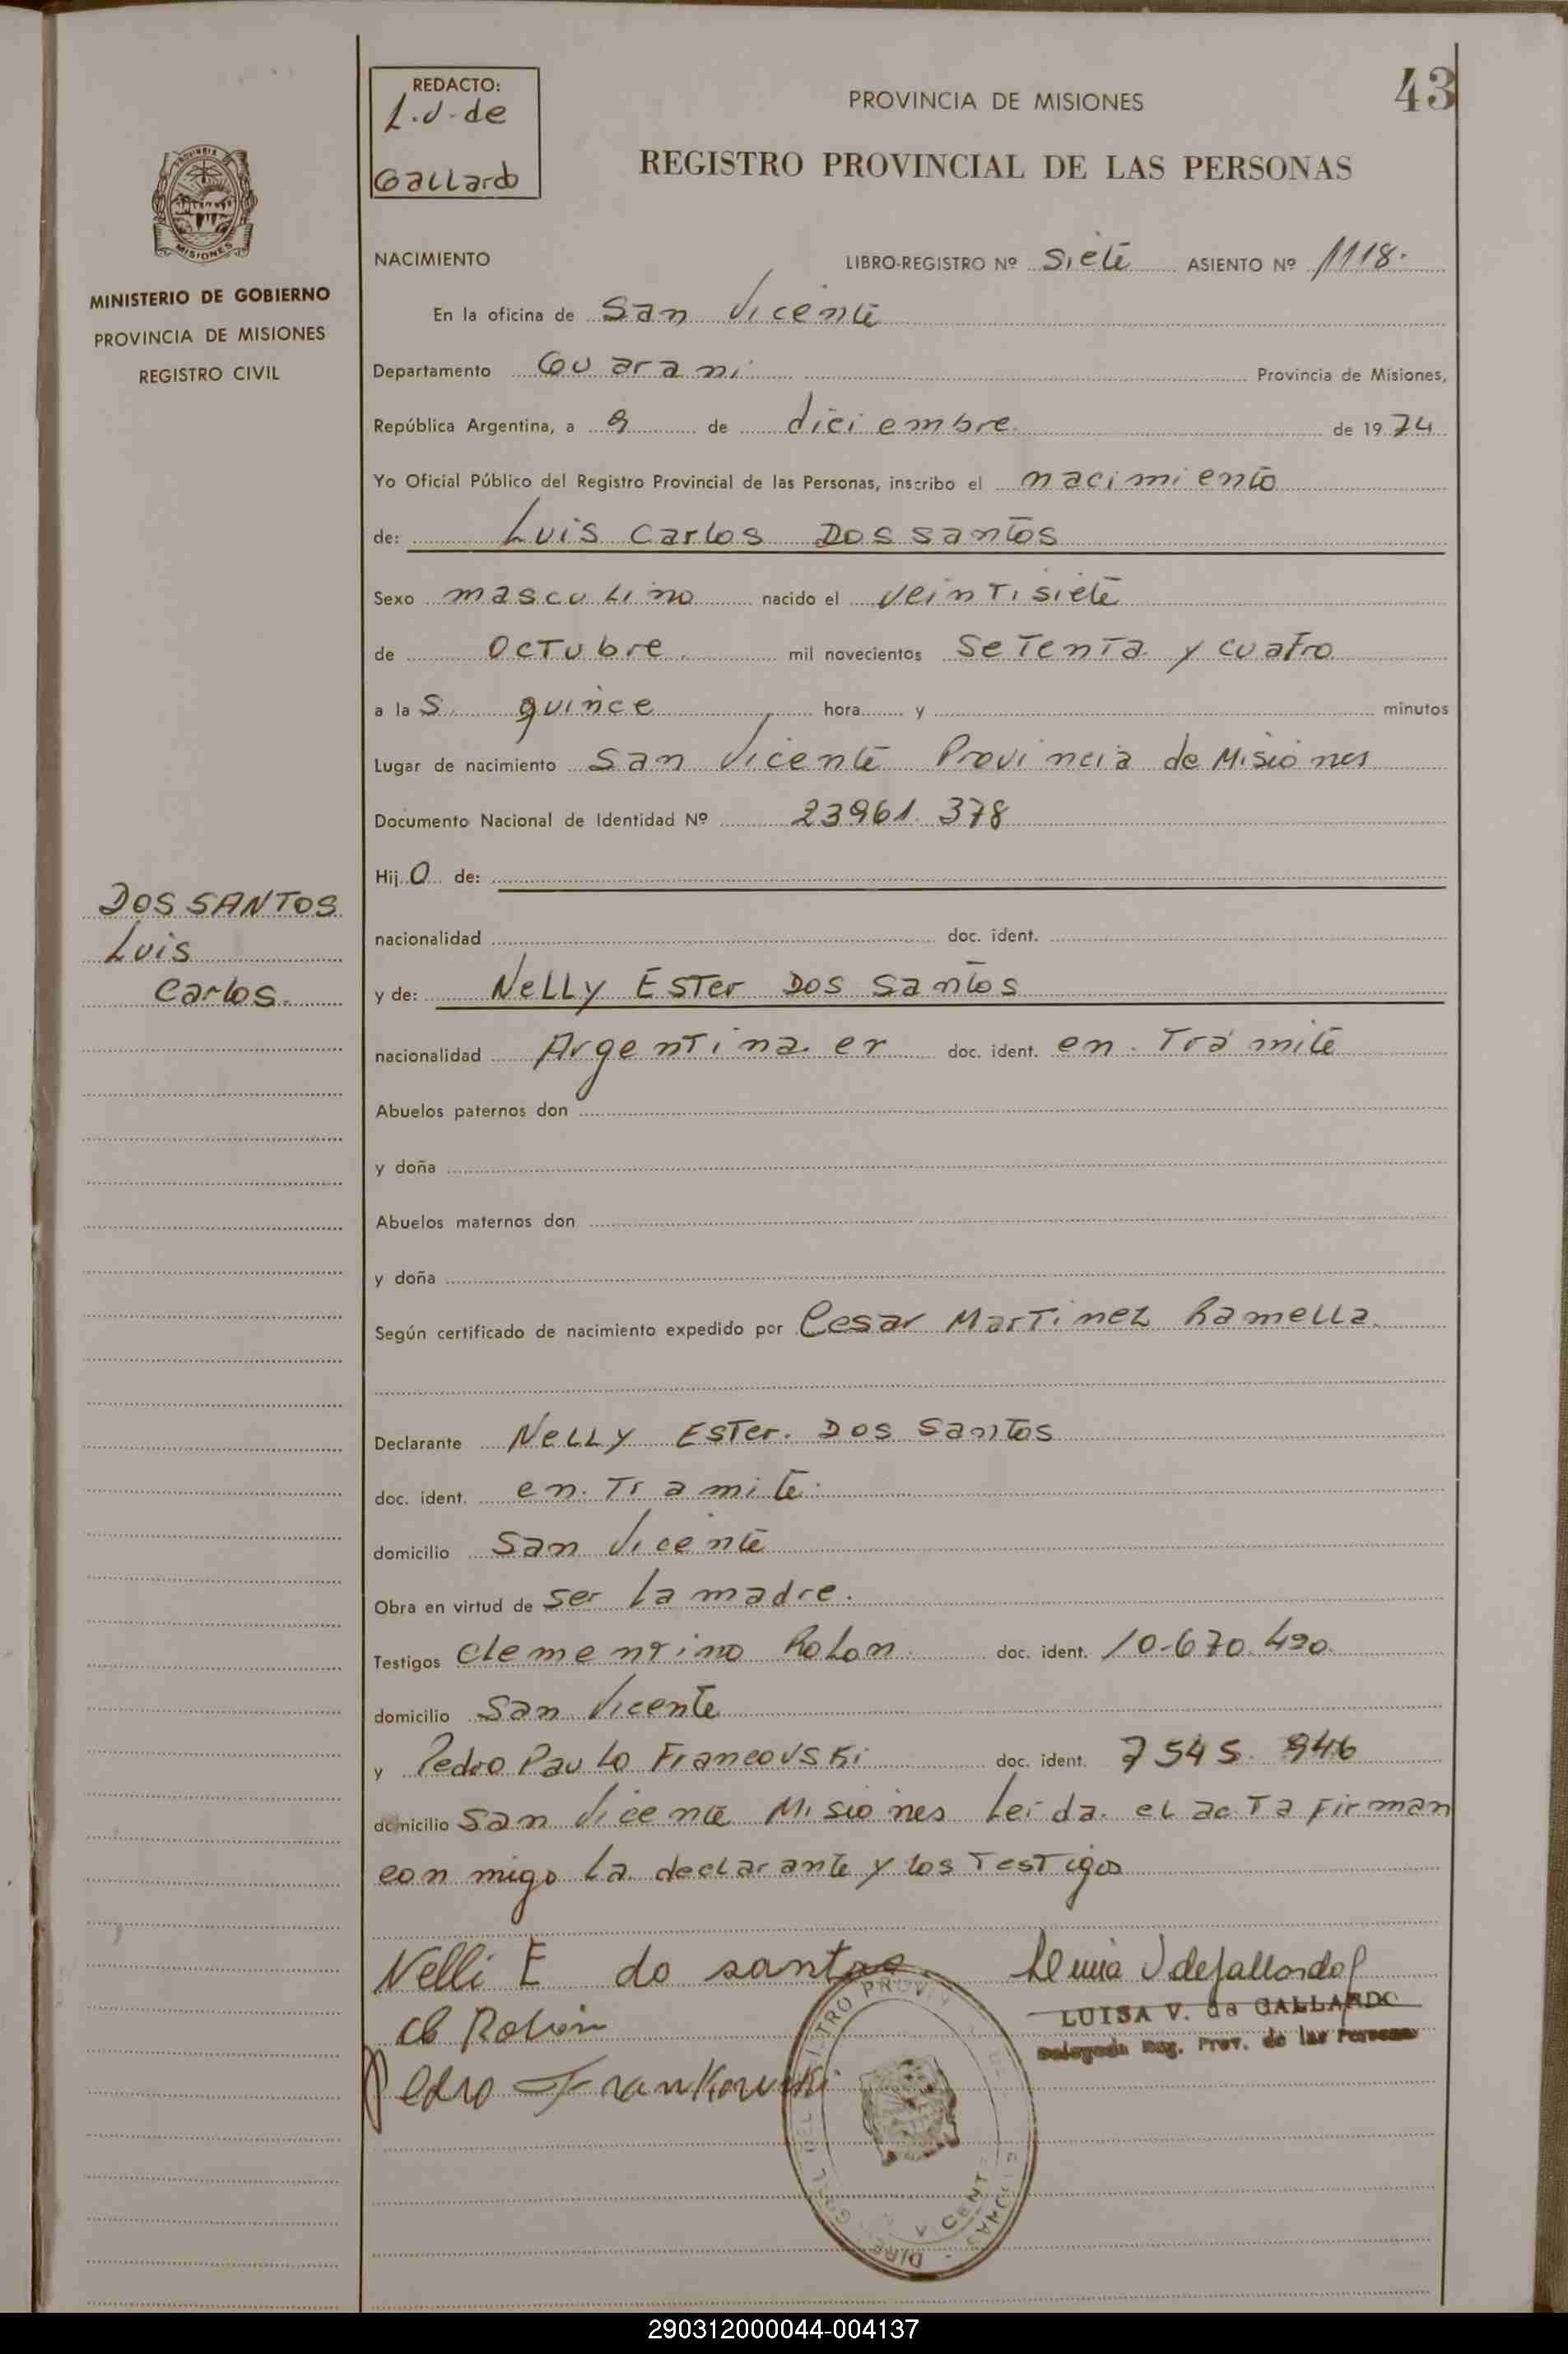 REDACTO:
L.V. de
Gallardo
PROVINCIA DE MISIONES
43
REGISTRO PROVINCIAL DE LAS PERSONAS
MISIONES
MINISTERIO DE GOBIERNO
PROVINCIA DE MISIONES
REGISTRO CIVIL
NACIMIENTO LIBRO-REGISTRO Nº siete ASIENTO Nº 1118.
En la oficina de San Vicente
Departamento Guarani Provincia de Misiones,
República Argentina, a 9 de diciembre de 1974
Yo Oficial Público del Registro Provincial de las Personas, inscribo el nacimiento
de: Luis Carlos Dos santos
Sexo masculino nacido el veintisiete
de Octubre mil novecientos setenta y cuatro
a las quince hora y minutos
Lugar de nacimiento San Vicente Provincia de Misiones
Documento Nacional de Identidad Nº 23961.378
Hijo de:
DOS SANTOS
Luis
Carlos.
nacionalidad doc. ident.
y de: Nelly Ester Dos Santos
nacionalidad Argentina er doc. ident. en Trámite
Abuelos paternos don
y doña
Abuelos maternos don
y doña
Según certificado de nacimiento expedido por Cesar Martinez Ramella.
Declarante Nelly Ester. Dos Santos
doc. ident. en Tramite.
domicilio San Vicente
Obra en virtud de ser la madre.
Testigos Clementino Rolon. doc. ident. 10.670.420.
domicilio San Vicente
y Pedro Paulo Francovski doc. ident. 7545.946
domicilio San Vicente Misiones leida el acta firman
con migo la declarante y los Testigos
Nelli E do santos
Cl Rolón
LUISA V. de GALLARDO
Delegada Reg. Prov. de las Personas
Pedro Frankowski
290312000044-004137